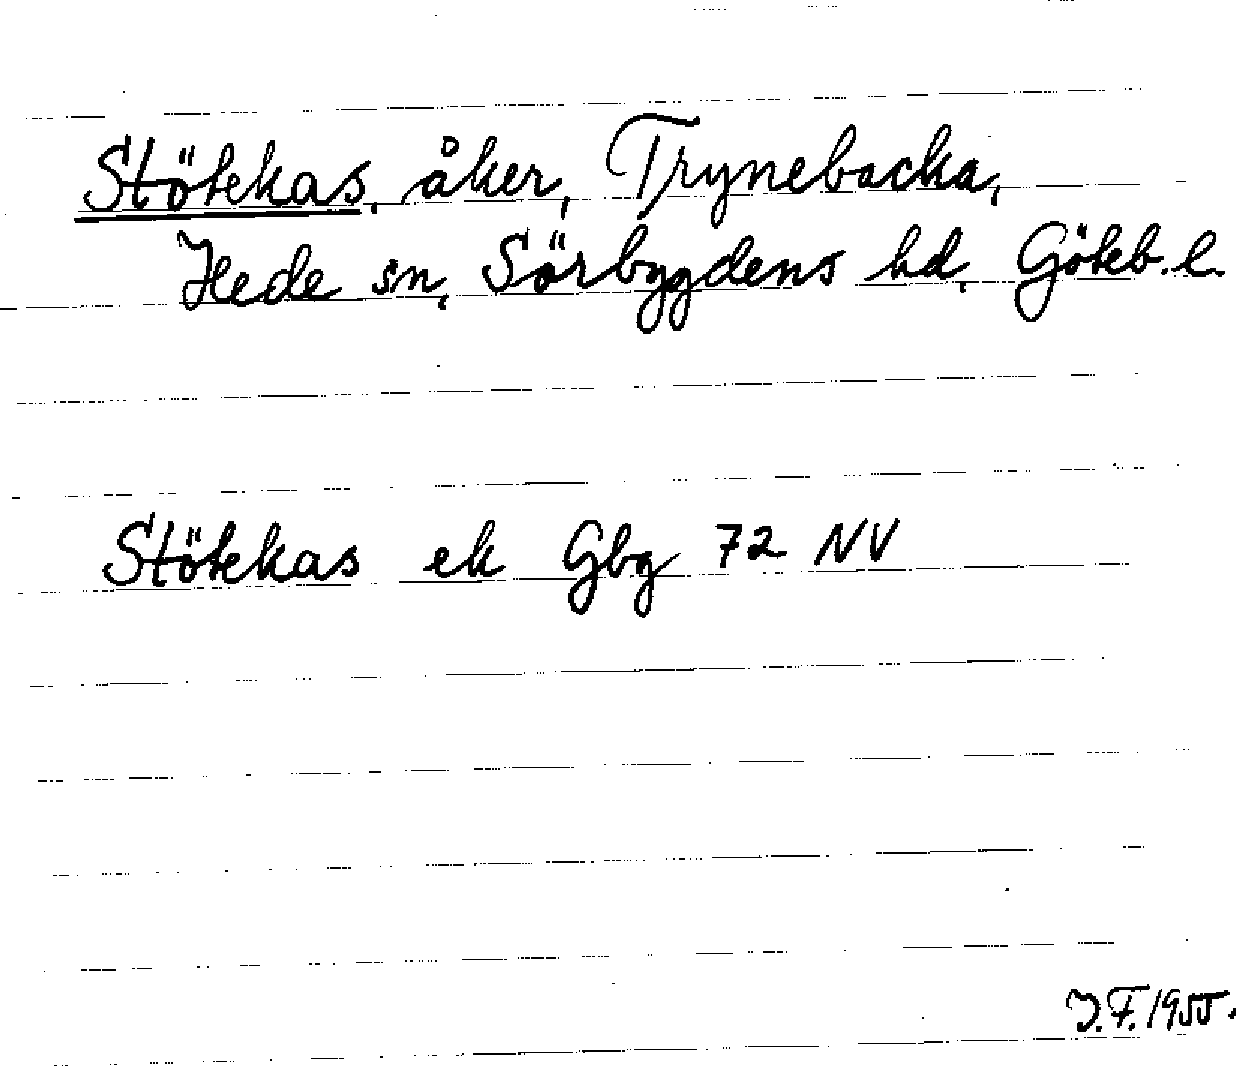 Stötekas, åker, Trynebacka,
Hede sn, Sörbygdens hd, Göteb. l.
Stötekas ek Gbg 72 NV
J.F. 1955.